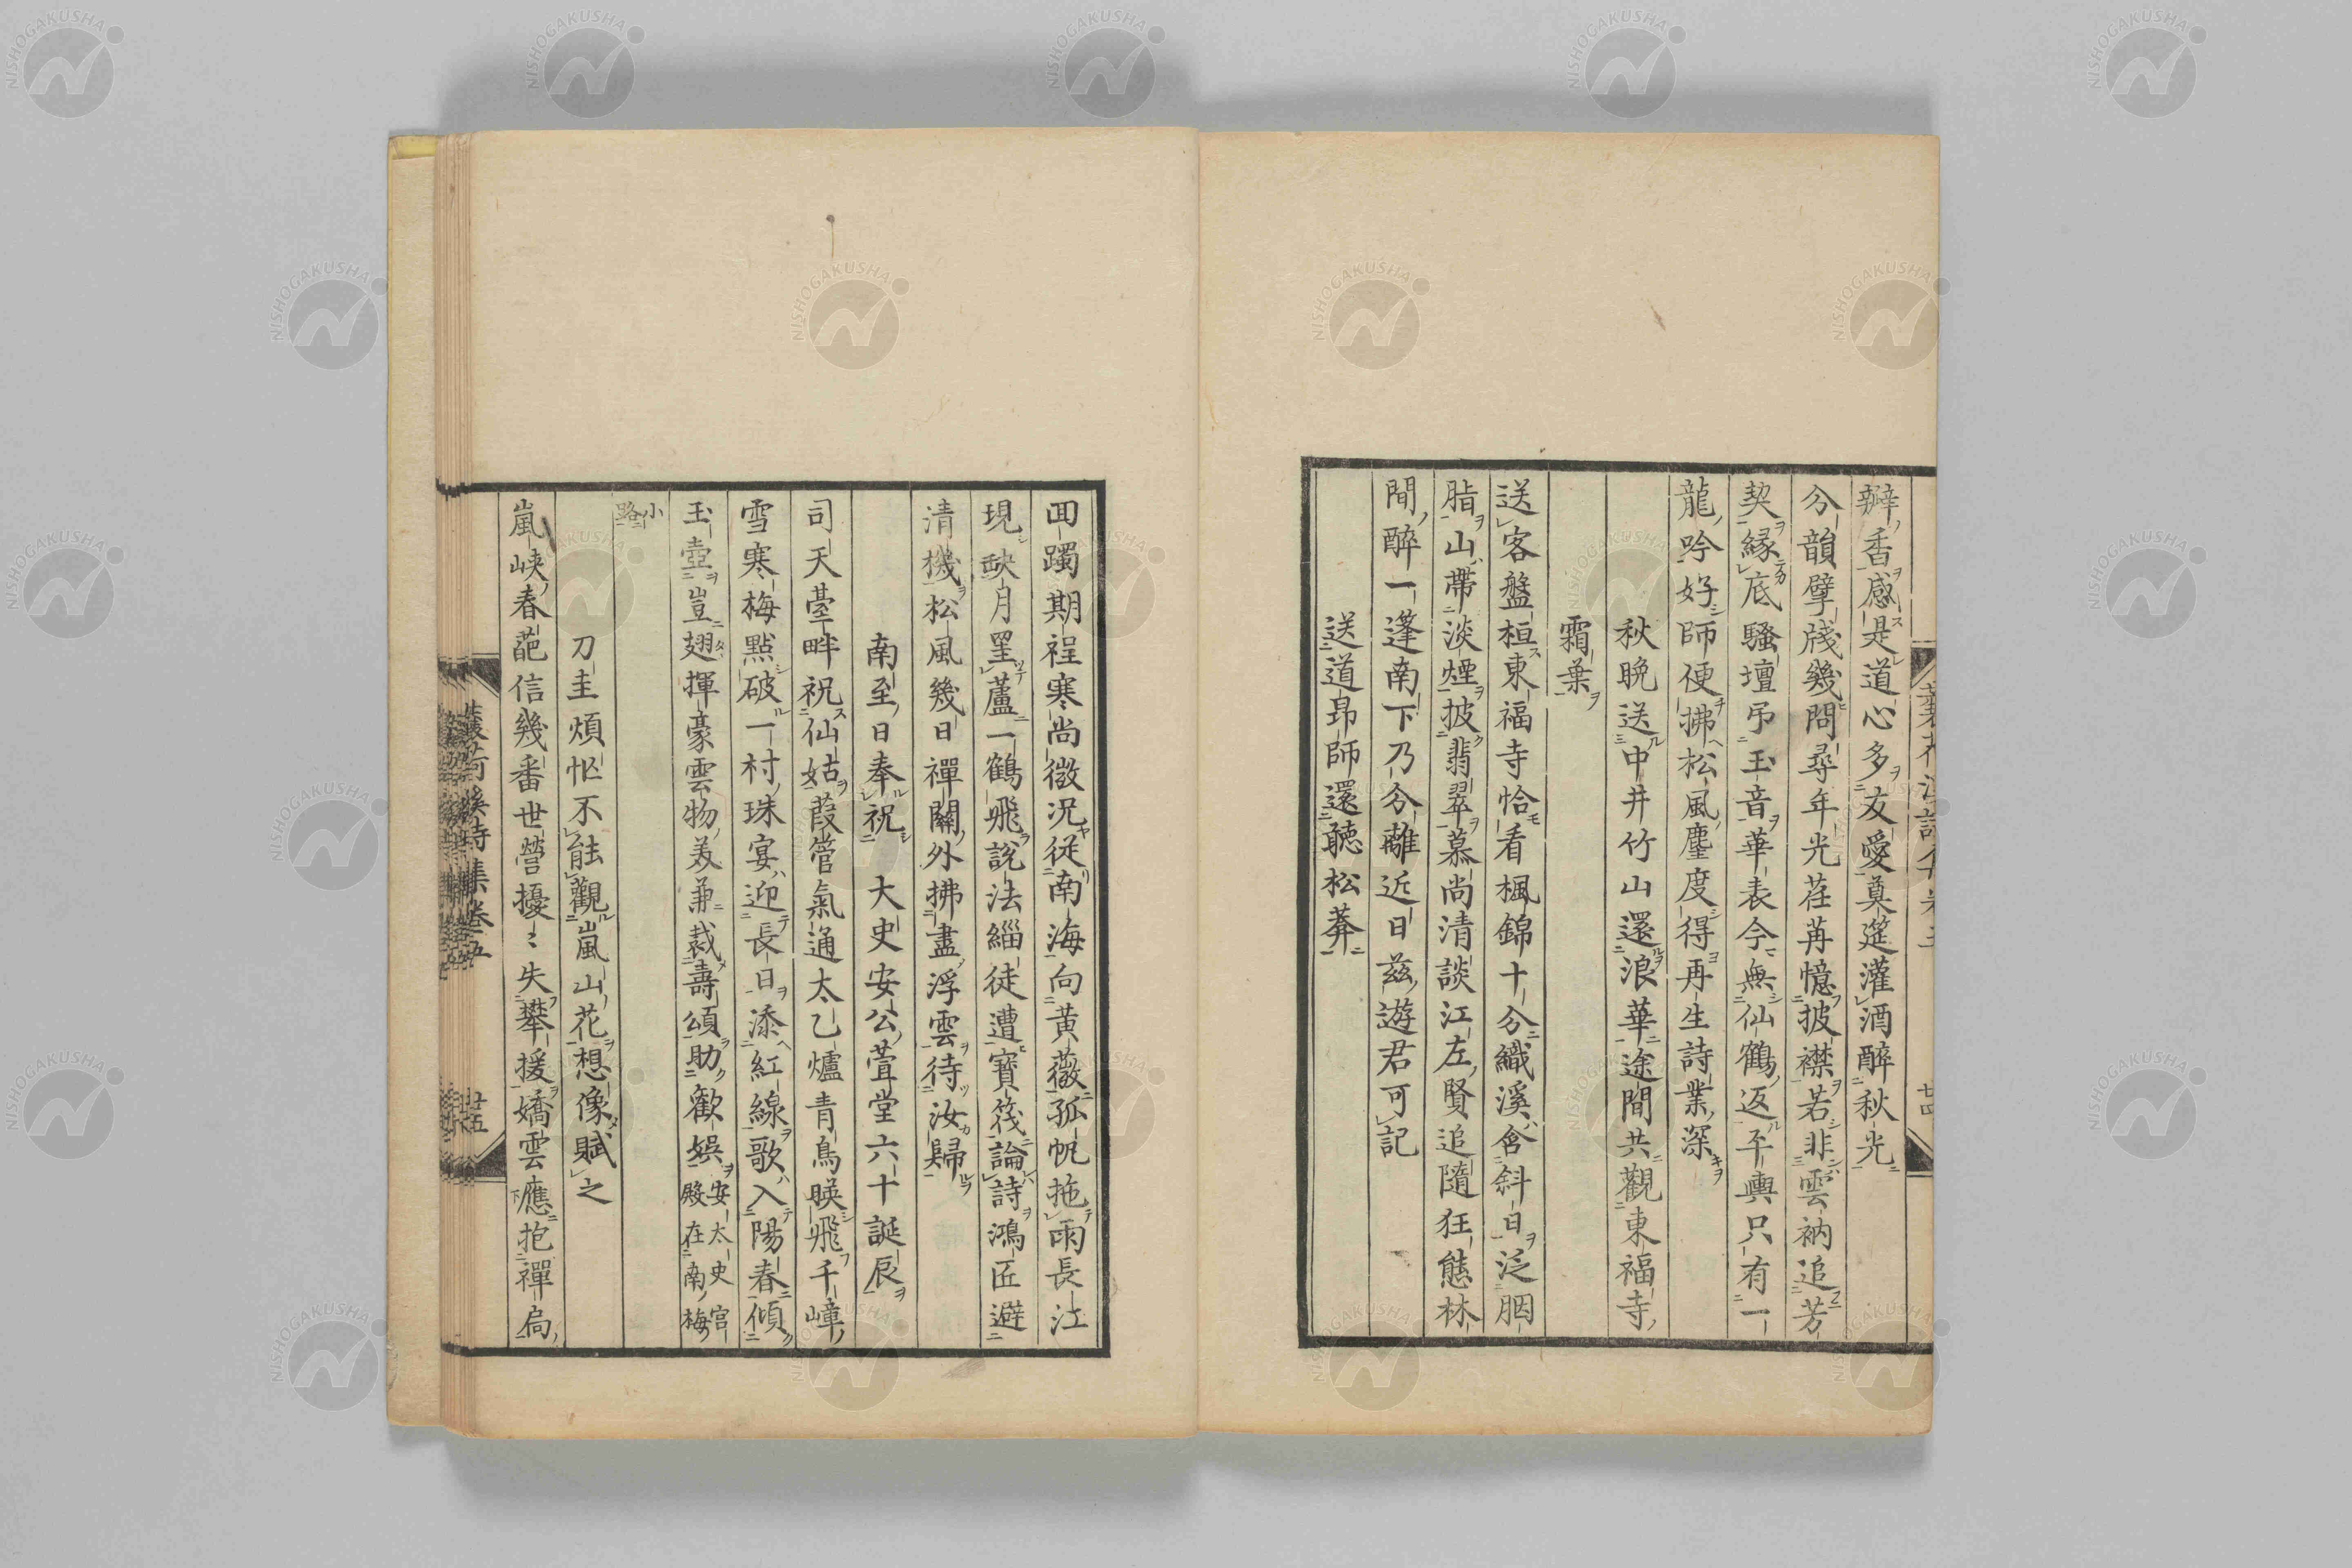 辨香感是道心多友愛奠筵灌酒醉秋光
分韻擘牋幾問尋年光荏苒憶披襟若非雲衲追芳
契緣底騷壇弔玉音華表今無仙鶴返平輿只有一
龍吟好師便拂松風塵度得再生詩業深
秋晚送中井竹山還浪華途間共觀東福寺
霜葉
送客盤桓東福寺恰看楓錦十分織溪含斜日泛胭
脂山帶淡煙披翡翠慕尚清談江左賢追隨狂態林
間醉一逢南下乃分離近日茲遊君可記
送道昂師還聽松菴
回躅期程寒尚微況從南海向黃薇孤帆拖雨長江
現缺月星蘆一鶴飛說法緇徒遭寶筏論詩鴻匠避
清機松風幾日禪關外拂盡浮雲待汝歸
南至日奉祝 大史安公萱堂六十誕辰
司天臺畔祝仙姑葭管氣通太乙爐青鳥暎飛千嶂
雪寒梅點破一村珠宴迎長日添紅線歌入陽春傾
玉壺豈翅揮豪雲物美兼裁壽頌助歡娛安太史宮
殿在南梅
小
路
刀圭煩忙不能觀嵐山花想像賦之
嵐峽春葩信幾番世營擾〻失攀援嬌雲應抱禪扃
蓑荷溪詩集卷五
廿五
廿四
NISHOGAKUSHA